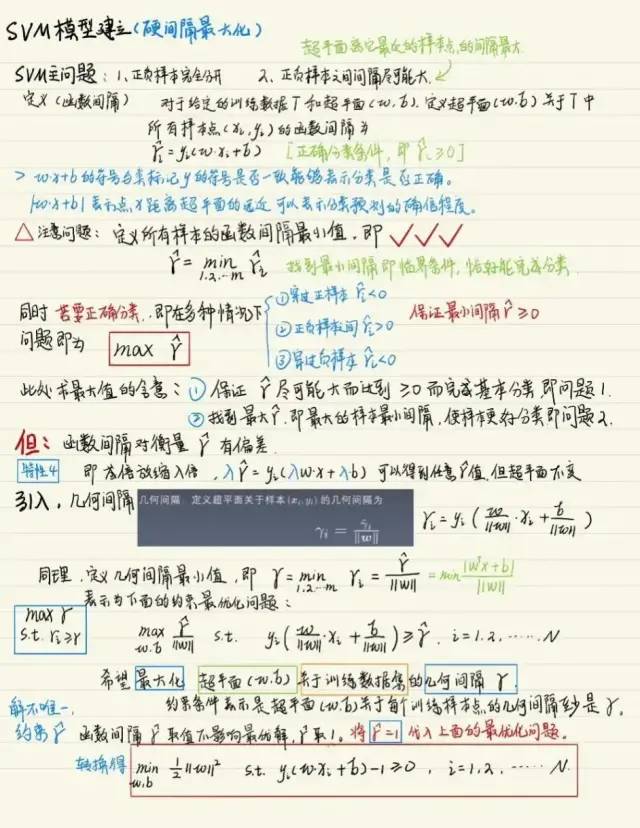 SVM模型建立(硬间隔最大化)
超平面离它最近的样本点的间隔最大
SVM主问题：1、正负样本完全分开 2、正负样本之间间隔尽可能大
定义(函数间隔) 对于给定的训练数据T和超平面(w,b),定义超平面(w,b)关于T中
所有样本点(xᵢ,yᵢ)的函数间隔为
γ̂ᵢ=yᵢ(w·xᵢ+b) [正确分类条件,即γ̂ᵢ≥0]
> w·x+b的符号与类标记y的符号是否一致能够表示分类是否正确。
|w·x+b|表示点x距离超平面的远近可以表示分类预测的确信程度。
△注意问题：定义所有样本的函数间隔最小值,即 ✓✓✓
γ̂=min γ̂ᵢ 找到最小间隔即临界条件,恰好能完成分类
1,2,…m
同时若要正确分类,即在多种情况下
①穿过正样本 γ̂ᵢ<0
②正负样本间 γ̂ᵢ>0
③穿过负样本 γ̂ᵢ<0
保证最小间隔γ̂≥0
问题即为 max γ̂
此处求最大值的含意：①保证γ̂尽可能大而达到≥0而完成基本分类即问题1.
②找到最大γ̂,即最大的样本最小间隔,使样本更好分类即问题2.
但：函数间隔对衡量γ̂有偏差.
特性4 即若倍放缩λ倍,λγ̂=yᵢ(λw·x+λb)可以得到任意γ̂值,但超平面不变
引入,几何间隔
几何间隔：定义超平面关于样本(xᵢ,yᵢ)的几何间隔为
γᵢ=γ̂ᵢ/||w||
γᵢ=yᵢ(w/||w||·xᵢ+b/||w||)
同理,定义几何间隔最小值,即 γ=min γᵢ=γ̂/||w||=min|wᵀx+b|/||w||
1,2,…m
表示为下面的约束最优化问题：
max γ
s.t. γᵢ≥γ
max γ̂/||w|| s.t. yᵢ(w/||w||·xᵢ+b/||w||)≥γ̂, i=1,2,……N
w,b
希望最大化超平面(w,b)关于训练数据集的几何间隔γ,
约束条件表示是超平面(w,b)关于每个训练样本点的几何间隔至少是γ,
解不唯一,
约束γ̂ 函数间隔γ̂取值不影响最优解,γ̂取1。将γ̂=1代入上面的最优化问题。
转换得 min ½||w||² s.t. yᵢ(w·xᵢ+b)-1≥0, i=1,2,……N.
w,b